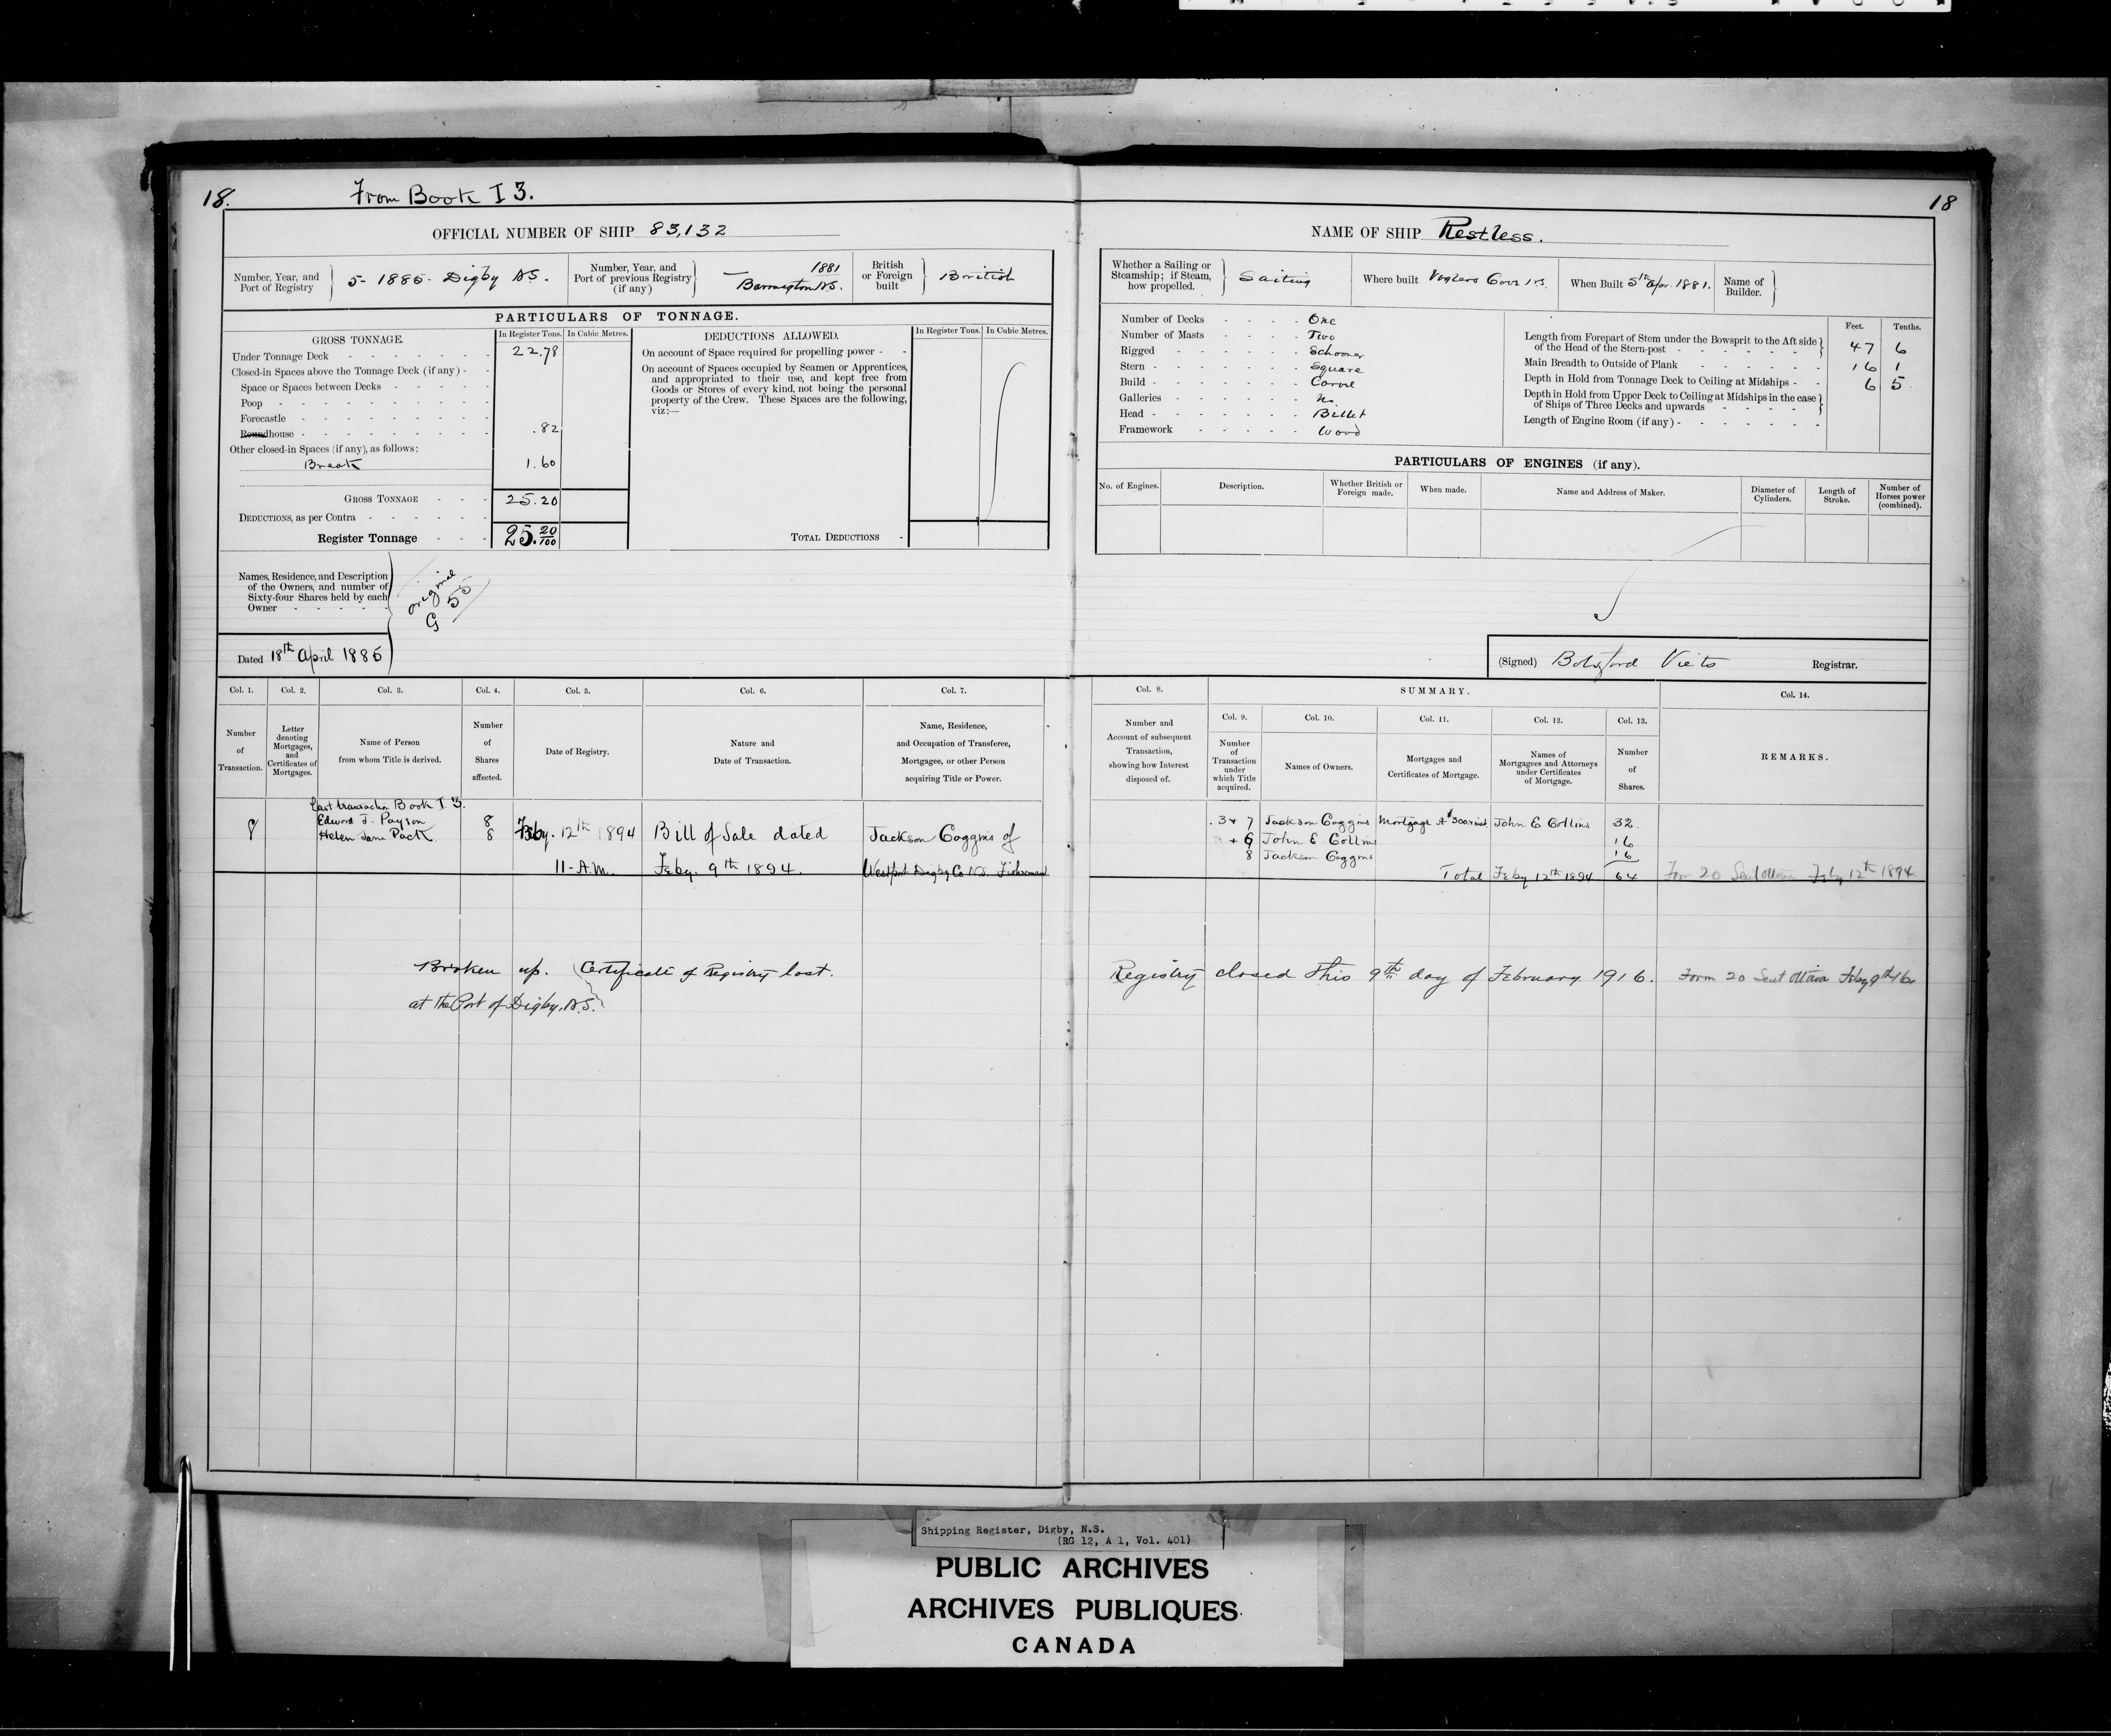 18.
From Book I 3.
18
OFFICIAL NUMBER OF SHIP 83,132
NAME OF SHIP Restless.
Number, Year, and Port of Registry
5 - 1885 - Digby N.S.
Number, Year, and Port of previous Registry (if any)
1881
Barrington N.S.
British or Foreign built
British
Whether a Sailing or Steamship; if Steam, how propelled.
Sailing
Where built Voglers Cove N.S.
When Built 5th Apr. 1881.
Name of Builder.
PARTICULARS OF TONNAGE.
GROSS TONNAGE.
In Register Tons. In Cubic Metres.
Under Tonnage Deck - 22.78
Closed-in Spaces above the Tonnage Deck (if any) -
Space or Spaces between Decks -
Poop -
Forecastle -
Roundhouse - .82
Other closed-in Spaces (if any), as follows:
Break 1.60
GROSS TONNAGE - 25.20
DEDUCTIONS, as per Contra -
Register Tonnage - 25.20/100
DEDUCTIONS ALLOWED.
In Register Tons. In Cubic Metres.
On account of Space required for propelling power -
On account of Spaces occupied by Seamen or Apprentices,
and appropriated to their use, and kept free from
Goods or Stores of every kind, not being the personal
property of the Crew. These Spaces are the following,
viz:—
TOTAL DEDUCTIONS -
Number of Decks - One
Number of Masts - Two
Rigged - Schooner
Stern - Square
Build - Carvel
Galleries - No
Head - Billet
Framework - Wood
Feet. Tenths.
Length from Forepart of Stem under the Bowsprit to the Aft side
of the Head of the Stern-post - 47 6
Main Breadth to Outside of Plank 16 1
Depth in Hold from Tonnage Deck to Ceiling at Midships - 6 5
Depth in Hold from Upper Deck to Ceiling at Midships in the case
of Ships of Three Decks and upwards -
Length of Engine Room (if any) -
PARTICULARS OF ENGINES (if any).
No. of Engines.
Description.
Whether British or Foreign made.
When made.
Name and Address of Maker.
Diameter of Cylinders.
Length of Stroke.
Number of Horses power (combined).
Names, Residence, and Description
of the Owners, and number of
Sixty-four Shares held by each
Owner -
original
G 55
Dated 18th April 1885
(Signed) Botsford Viets Registrar.
Col. 1. Col. 2. Col. 3. Col. 4. Col. 5. Col. 6. Col. 7.
Col. 8. SUMMARY. Col. 14.
Col. 9. Col. 10. Col. 11. Col. 12. Col. 13.
Number of Transaction.
Letter denoting Mortgages, and Certificates of Mortgages.
Name of Person from whom Title is derived.
Number of Shares affected.
Date of Registry.
Nature and Date of Transaction.
Name, Residence, and Occupation of Transferee, Mortgagee, or other Person acquiring Title or Power.
Number and Account of subsequent Transaction, showing how Interest disposed of.
Number of Transaction under which Title acquired.
Names of Owners.
Mortgages and Certificates of Mortgage.
Names of Mortgagees and Attorneys under Certificates of Mortgage.
Number of Shares.
REMARKS.
Last transaction Book I 3.
Edward J. Payson 8
8 Helen Jane Pack 8 Feby. 12th 1894 Bill of Sale dated Jackson Coggins of
11-A.M. Feby. 9th 1894. Westport Digby Co N.S. Fisherman
3 + 7 Jackson Coggins Mortgage A $300 John E Collins 32
+ 6 John E Collins 16
8 Jackson Coggins 16
Total Feby 12th 1894 64 Form 20 Sent Ottawa Feby 12th 1894
Broken up. Certificate of Registry lost.
at the Port of Digby, N.S.
Registry closed this 9th day of February 1916. Form 20 Sent Ottawa Feby 9th/16
Shipping Register, Digby, N.S.
(RG 12, A 1, Vol. 401)
PUBLIC ARCHIVES
ARCHIVES PUBLIQUES
CANADA